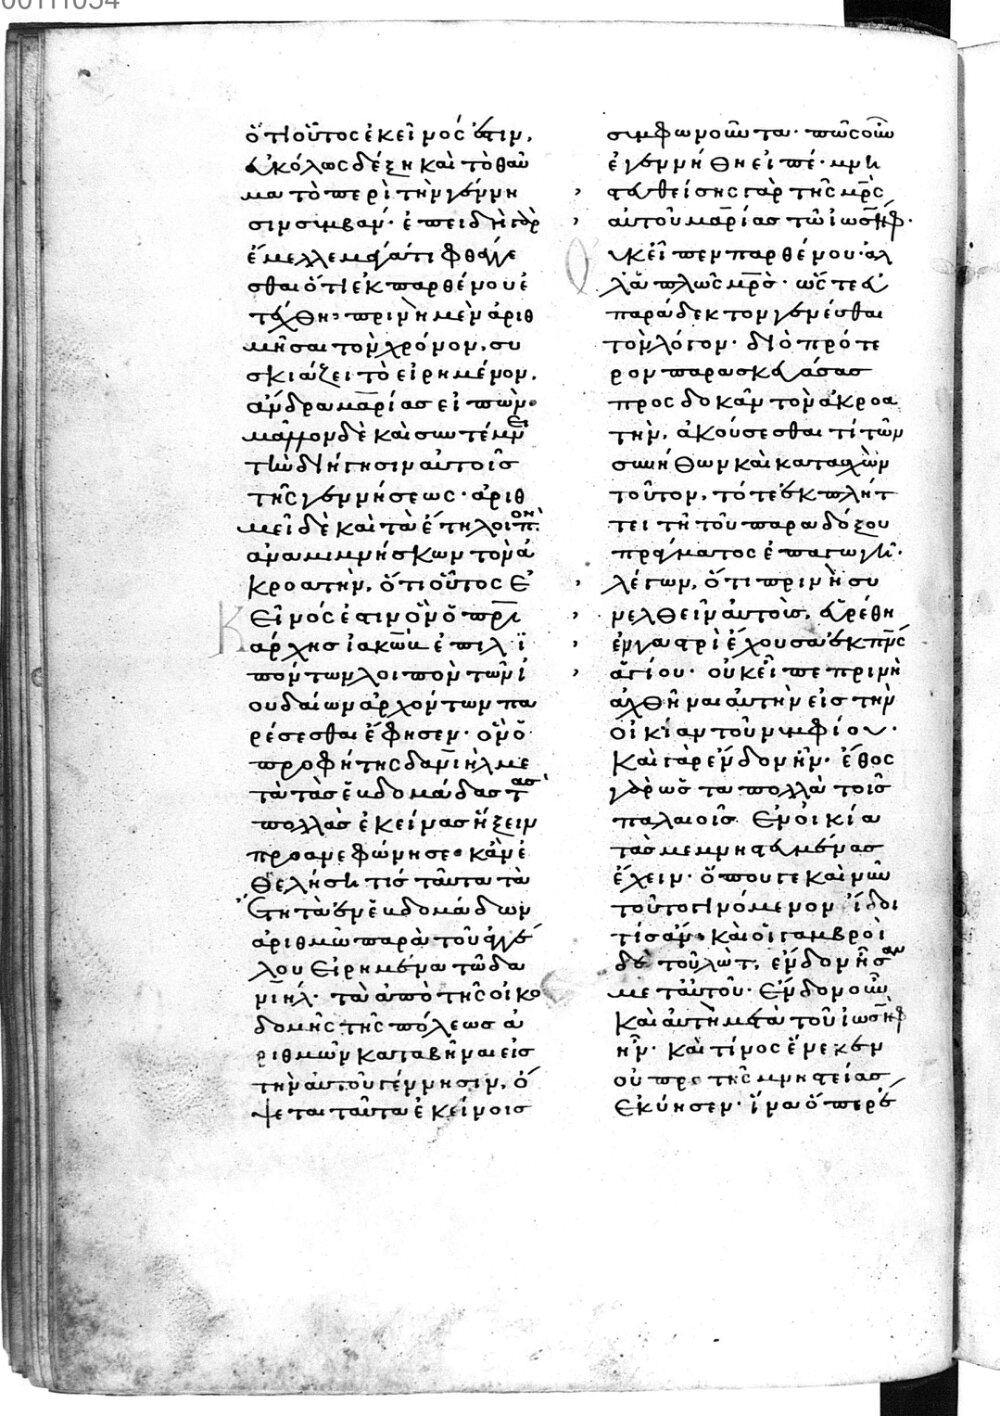 ὅτι οὗτος ἐκεῖνός ἐστιν,
εὐκόλως δέξῃ καὶ τὸ θαῦ
μα τὸ περὶ τὴν γέννη
σιν συμβάν· ἐπειδὴ γὰρ
ἔμελλε μέγα τι φθέγγε
σθαι ὅτι ἐκ παρθένου ἐ
τέχθη· πρινὴ μὲν ἀριθ
μῆσαι τὸν χρόνον, συ
σκιάζει τὸ εἰρημένον,
ἄνδρα μαρίας εἰπών·
μᾶλλον δὲ καὶ συντέμνει
τὴν διήγησιν αὐτοῖς
τῆς γεννήσεως· ἀριθ
μεῖ δὲ καὶ τὰ ἔτη λοιπὸν
ἀναμιμνήσκων τὸν ἀ
κροατὴν, ὅτι οὗτος ἐ
κεῖνός ἐστιν ὃν ὁ πρι
άρχης ἰακὼβ ἐπιλεϊ
πόντων λοιπὸν τῶν ἰ
ουδαίων ἀρχόντων πα
ρέσεσθαι ἔφησεν· ὃν ὁ
προφήτης δανιὴλ με
τὰ τὰς ἑβδομάδας τὰς
πολλὰς ἐκείνας ἥξειν
προανεφώνησε· κἂν ἐ
θελήσει τις ταῦτα τὰ
ἔτη τὰ ἐν ἑβδομάδων
ἀριθμῷ παρὰ τοῦ ἀγγέ
λου εἰρημένα τῷ δα
νιήλ· τὰ ἀπὸ τῆς οἰκο
δομῆς τῆς πόλεως ἀ
ριθμῶν καταβῆναι εἰς
τὴν αὐτοῦ γέννησιν, ὄ
ψεται ταῦτα ἐκείνοις
συμφωνοῦντα· πῶς οὖν
ἐγεννήθη εἰπέ· μνη
στευθείσης γὰρ τῆς μρς
αὐτοῦ μαρίας τῷ ἰωσήφ·
Οὐκ εἶπεν παρθένου· ἀλ
λ' ἁπλῶς μρς· ὥστε εὐ
παράδεκτον γενέσθαι
τὸν λόγον· διὸ πρότε
ρον παρασκευάσας
προσδοκᾶν τὸν ἀκροα
τὴν, ἀκούσεσθαι τί τῶν
συνήθων καὶ κατασχὼν
τοῦτον, τότε ἐκπλήτ
τει τῇ τοῦ παραδόξου
πράγματος ἐπαγωγῇ·
λέγων, ὅτι πρινὴ συ
νελθεῖν αὐτοὺς, εὑρέθη
ἐν γαστρὶ ἔχουσα ἐκ πνς
ἁγίου· οὐκ εἶπε πρινὴ
ἀχθῆναι αὐτὴν εἰς τὴν
οἰκίαν τοῦ νυμφίου·
Καὶ γὰρ ἔνδον ἦν· ἔθος
γὰρ ὡς τὰ πολλὰ τοῖς
παλαιοῖς ἐν οἰκίᾳ
τὰς μεμνηστευμένας
ἔχειν· ὅπου γε καὶ νῦν
τοῦτο γινόμενον ἴδοι
τίς ἄν· καὶ οἱ γαμβροὶ
δὲ τοῦ λὼτ, ἔνδον ἦσαν
μετ' αὐτοῦ· ἔνδον οὖν
Καὶ αὐτὴ μετὰ τοῦ ἰωσὴφ
ἦν· καὶ τίνος ἕνεκεν
οὐ πρὸ τῆς μνηστείας
ἐκύησεν· ἵνα ὅπερ ἐ